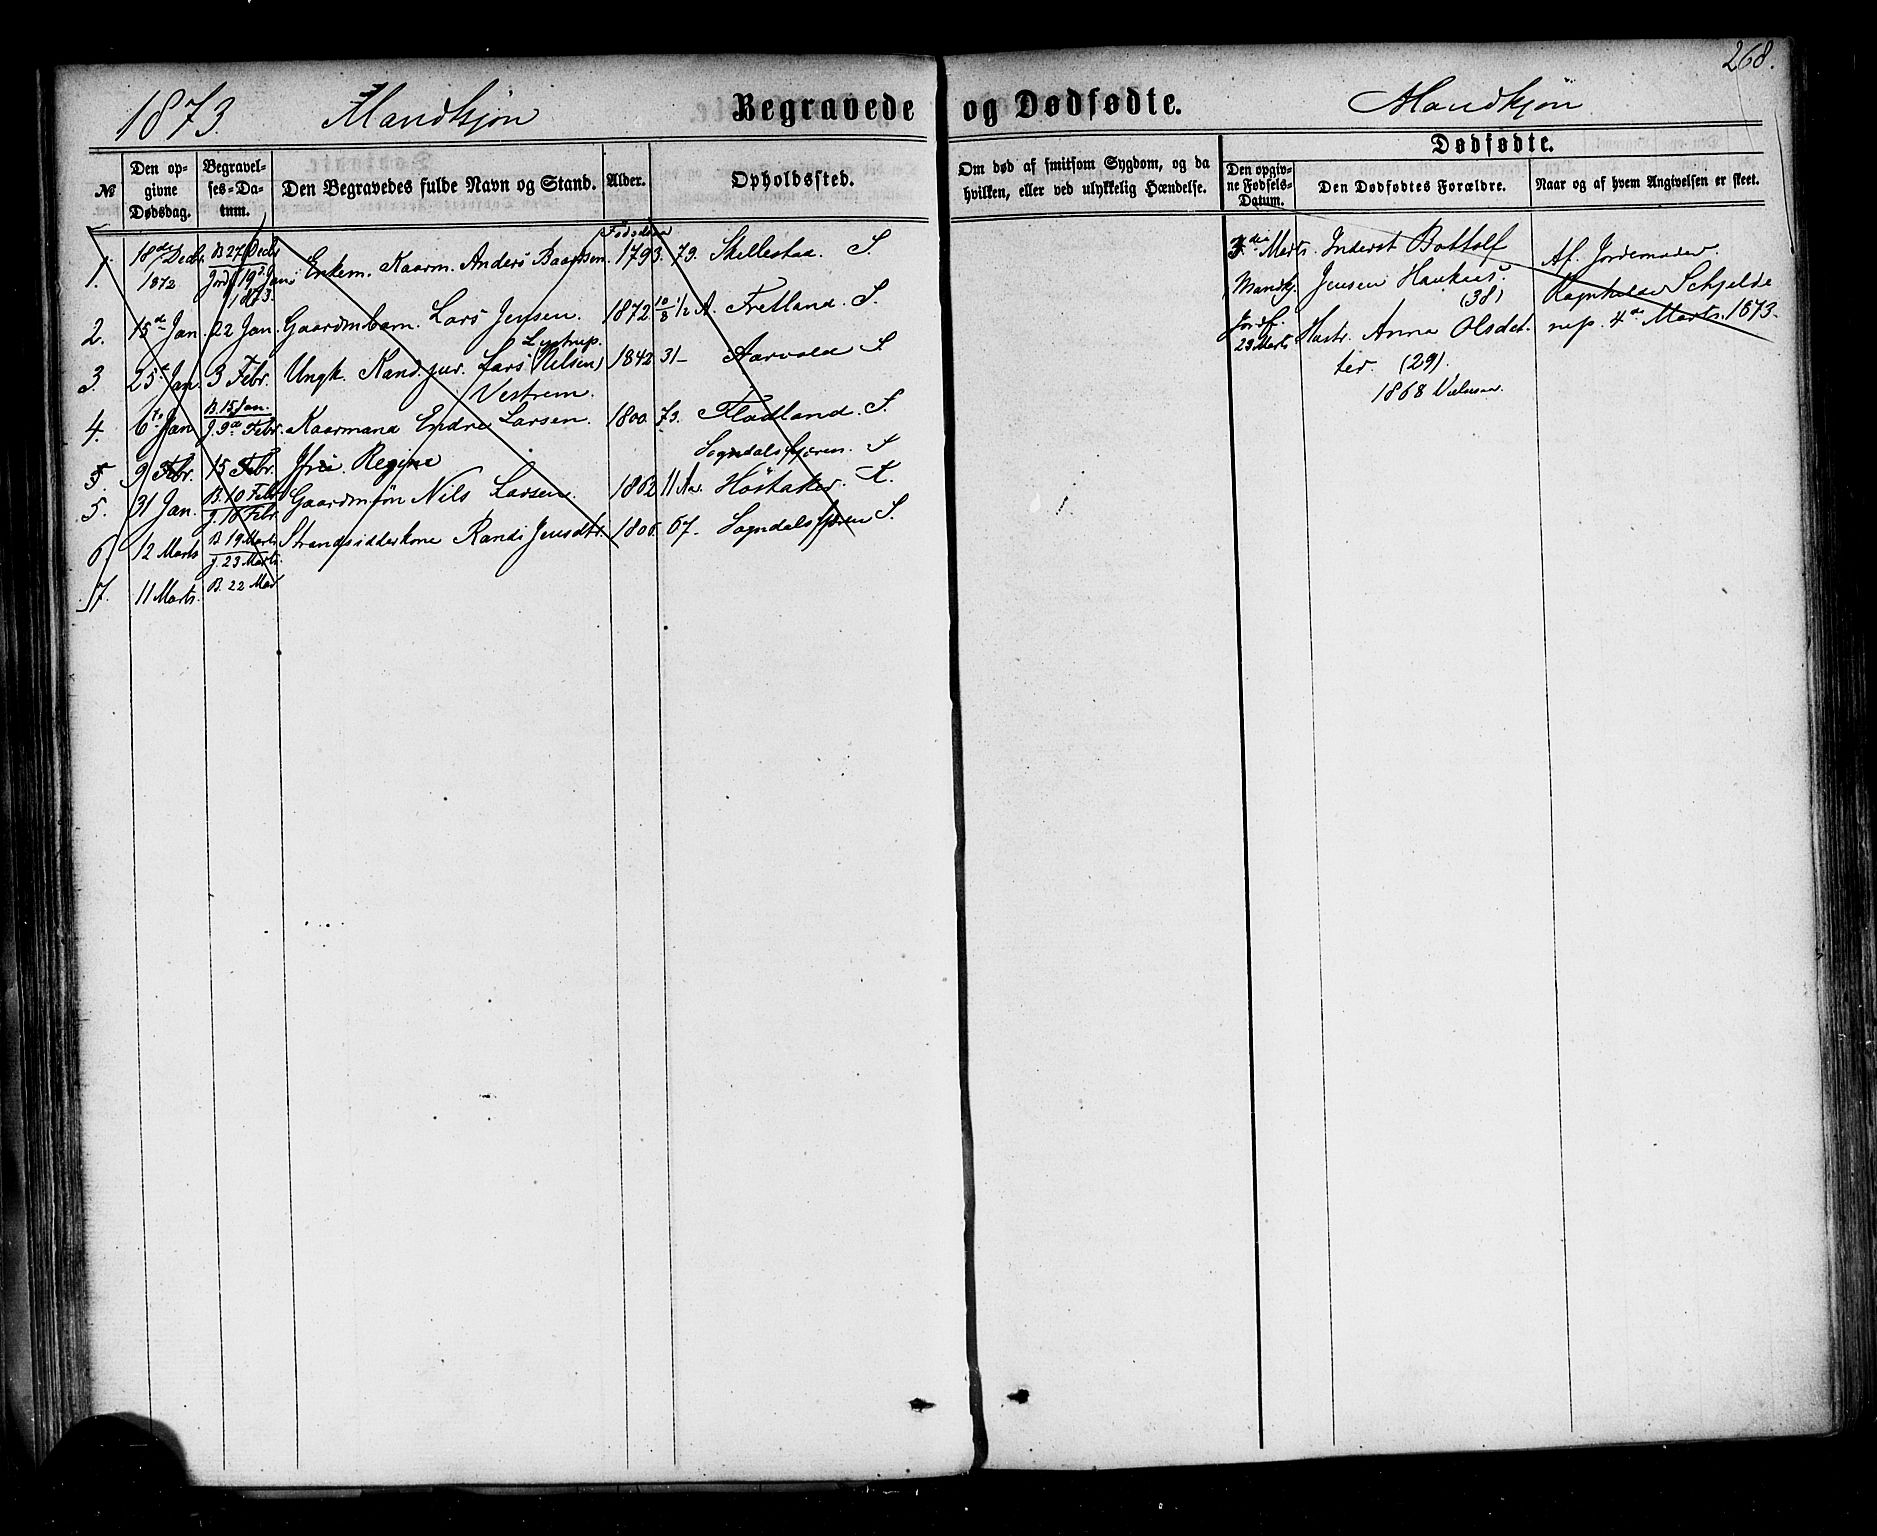 268.
1873. Mandkjøn Begravede og Dødfødte. Mandkjøn
№
Den opgivne Dødsdag.
Begravelses-Datum.
Den Begravedes fulde Navn og Stand.
Alder.
Opholdssted.
Om død af smitsom Sygdom, og da hvilken, eller ved ulykkelig Hændelse.
Dødfødte.
Den opgivne Fødsels-Datum.
Den Dødfødtes Forældre.
Naar og af hvem Angivelsen er skeet.
1. 18de Decbr. 1872 B 27 Decb Jordf. 19 Jan 1873. Enkem. Kaarm. Anders 1793. 79. Skjellestad. S.
2. 15de Jan. 22 Jan. Gaardmbarn. Lars Jensen. 1872 10/8 1/2 A. Fretland. S.
3. 25de Jan. 3 Febr. Ungk. Kand. jur. Lars (Nilsen) Lystrup. Vestrem. 1842 31- Aarvold S
4. 6te Jan B. 15 Jan. J. 9de Febr. Kaarmand Endre Larsen. 1800. 73. Flodland. S.
5. 9 Febr. 15 Febr. Jfru Regine Sogndalsfjøren. S
5. 31 Jan. B. 10 Febr J. 16 Febr. Gaardmsøn Nils Larsen. 1862 11 Aar. Høstaker. K.
6. 12 Marts B. 19 Marts J. 23 Marts. Strandsidderkone Randi Jensdtr. 1806. 67. Sogndalsfjøren S.
7. 11 Marts. B. 22 Mar
3die Marts. Inderst Bottolf
Mandkj. Jensen Haukaas. (38)
Jordf. 23 Marts Hustr. Anna Olsdatter. (29).
1868
Af Jordemoder
Ragnhilda Schjelde
nup. 4de Marts. 1873.